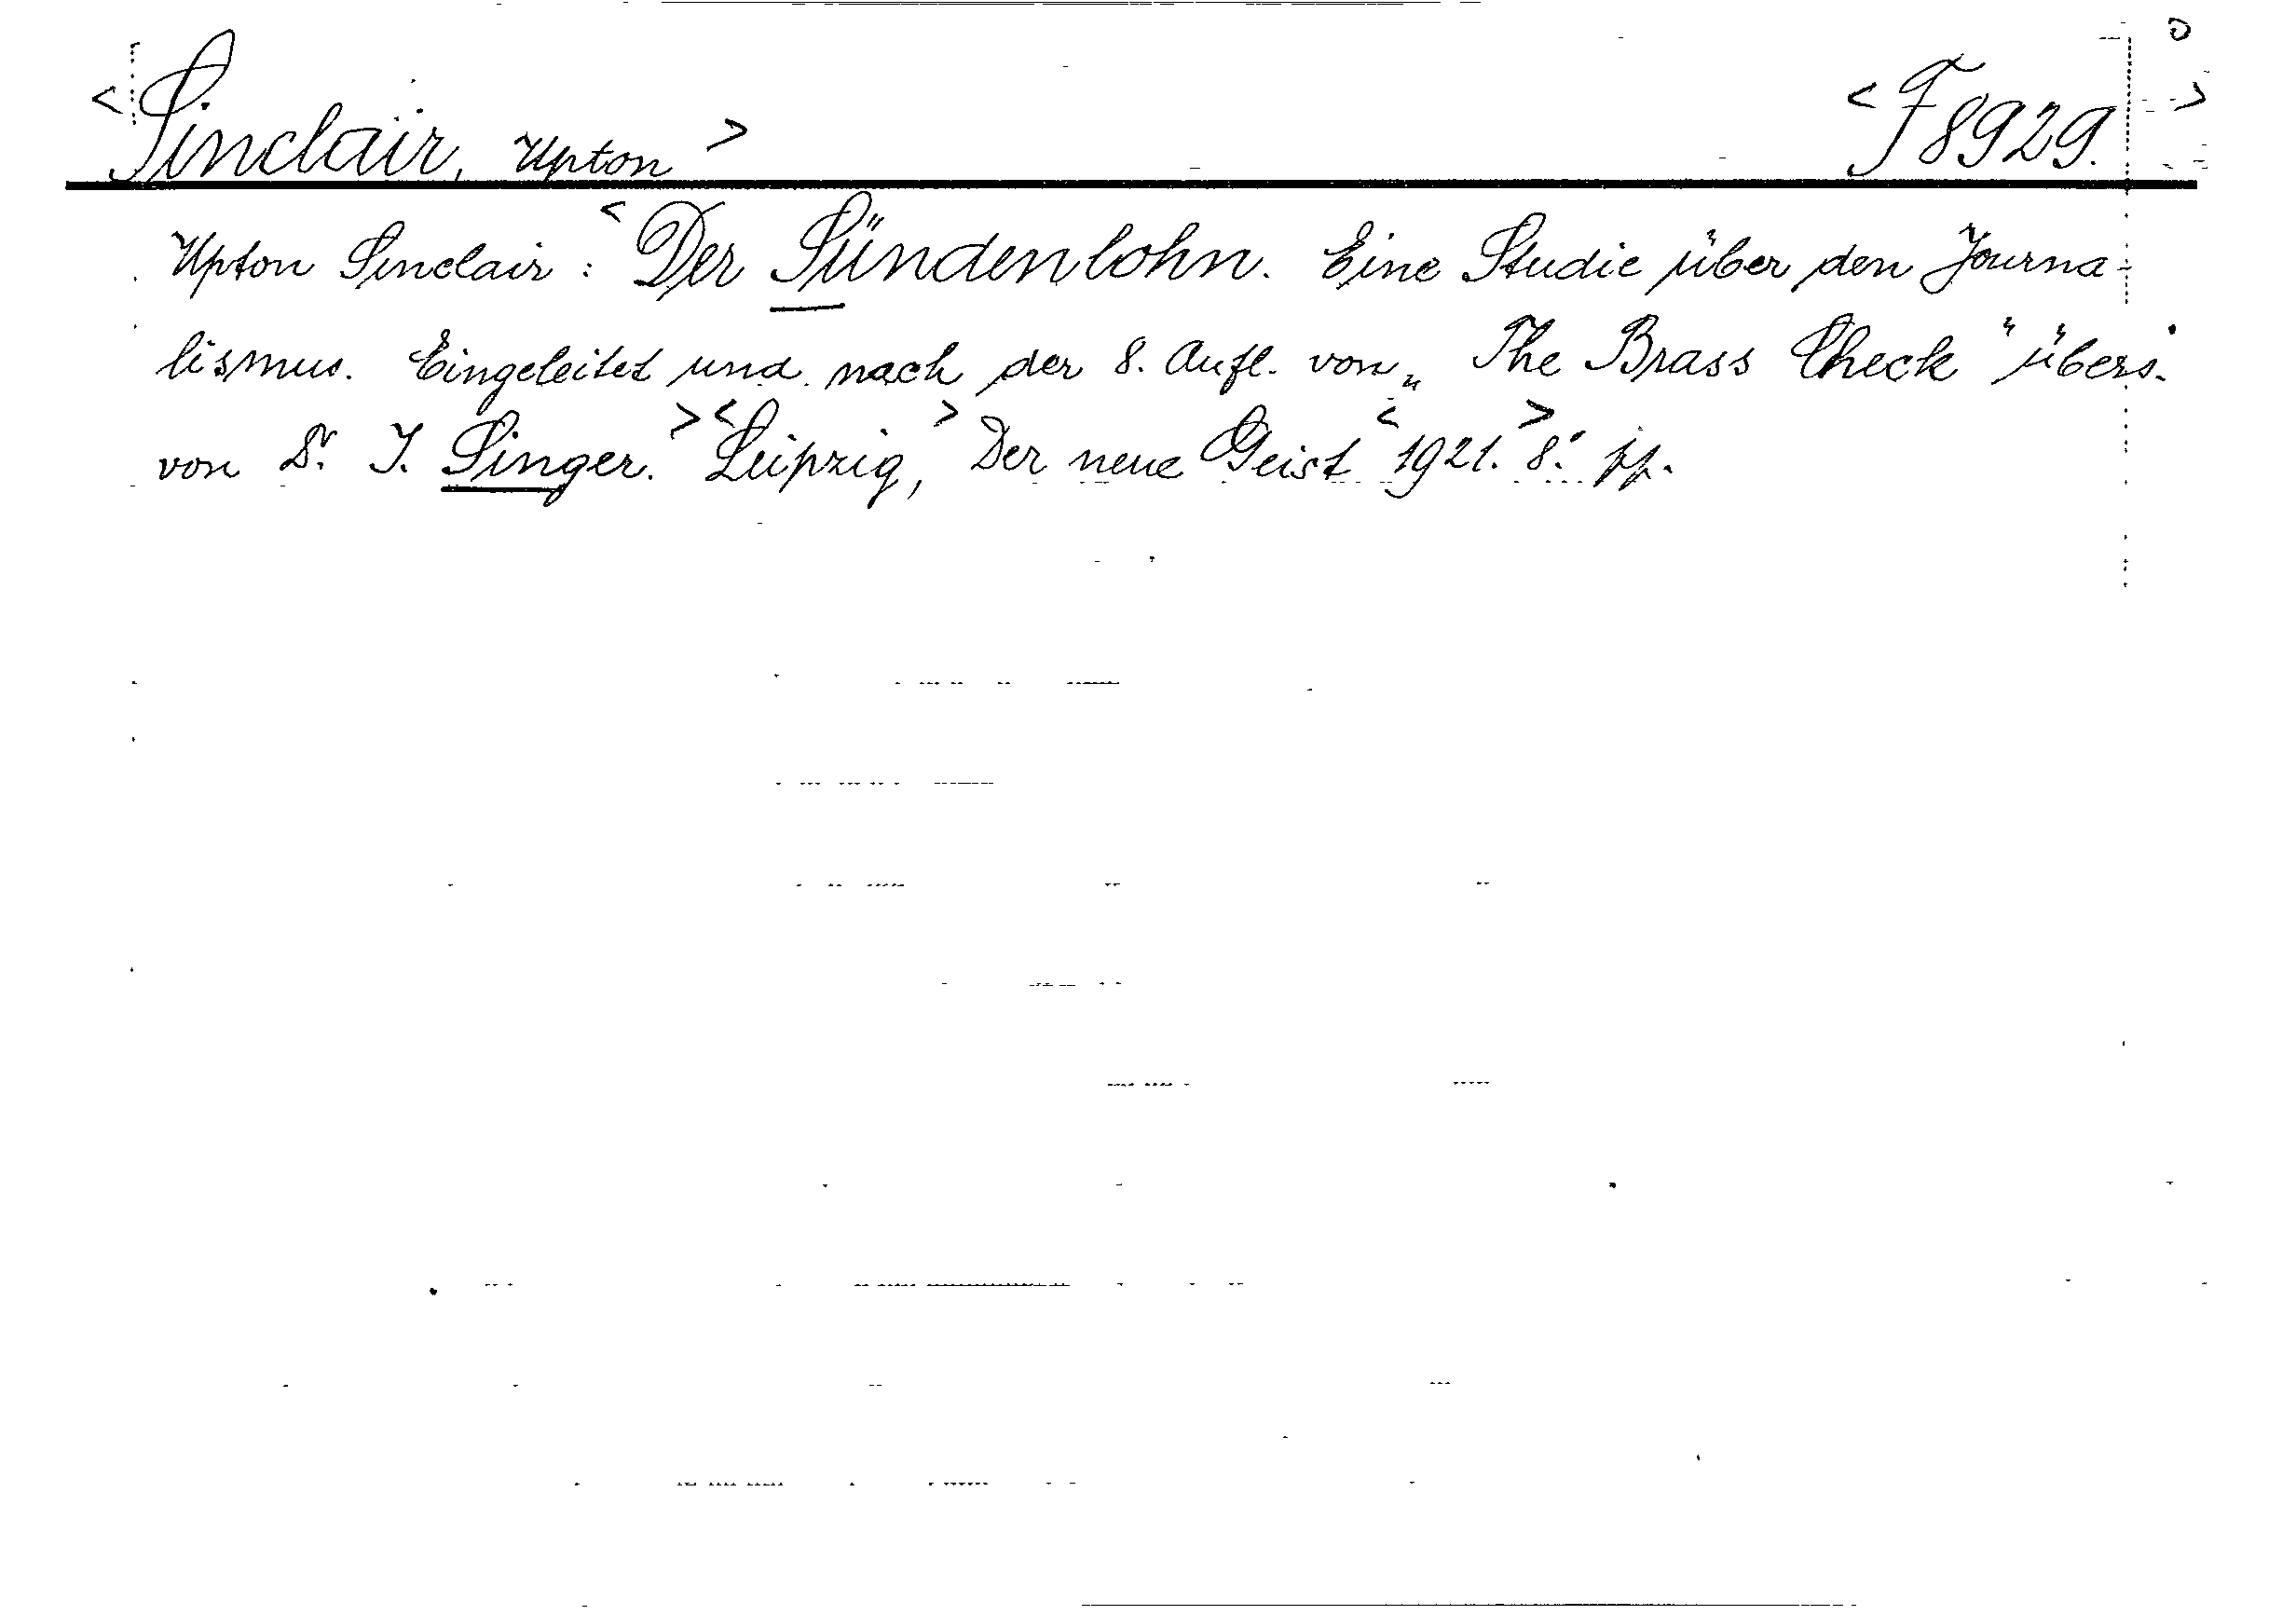 <Sinclair, Upton> <F 8929.>
Upton Sinclair: <Der Sündenlohn. Eine Studie über den Journa-
lismus. Eingeleitet und nach der 8. Aufl. von „The Brass Check" übers.
von Dr. I. Singer.> <Leipzig,> Der neue Geist <1921.> 8.°